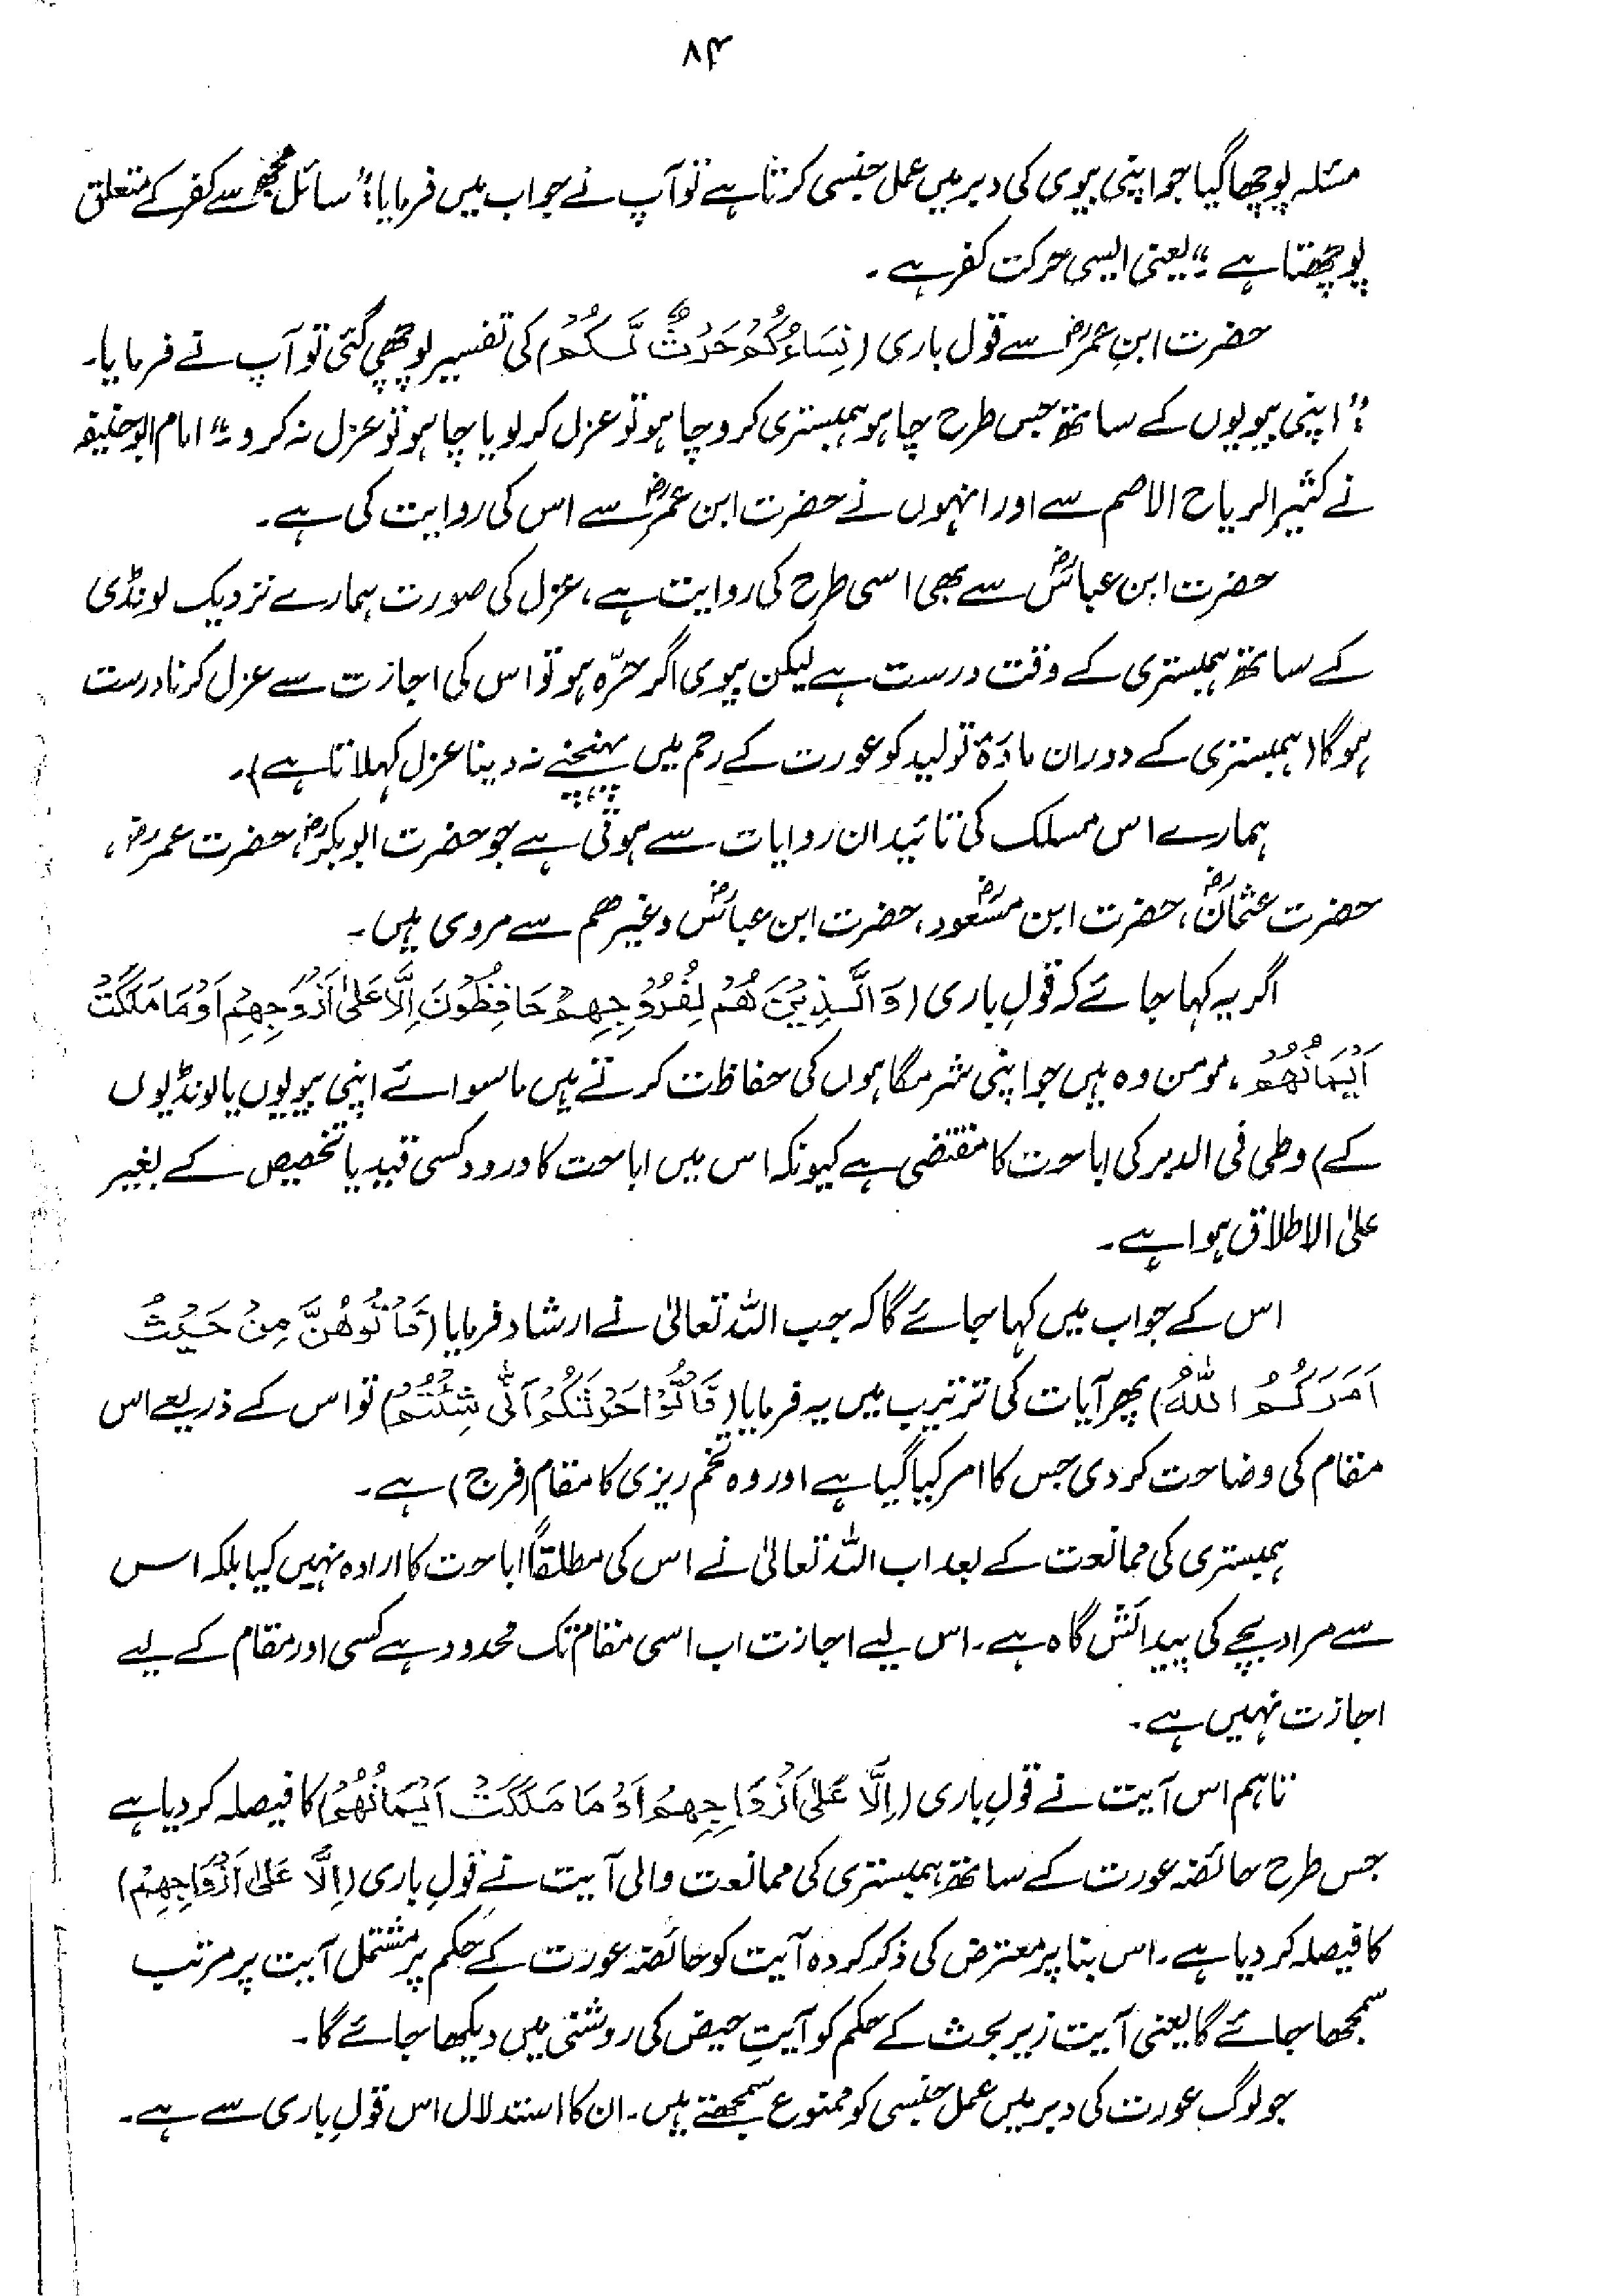 ۸۴
مسئلہ پوچھا گیا جو اپنی بیوی کی دبر میں عمل جنسی کرتا ہے تو آپ نے جواب میں فرمایا: "سائل مجھ سے کفر کے متعلق
پوچھتا ہے" یعنی ایسی حرکت کفر ہے۔
حضرت ابنِ عمرؓ سے قول باری (نِسَاءُكُمْ حَرْثٌ لَّكُمْ) کی تفسیر پوچھی گئی تو آپ نے فرمایا۔
"اپنی بیویوں کے ساتھ جس طرح چاہو ہمبستری کرو چاہو تو عزل کرلو یا چاہو تو عزل نہ کرو" امام ابوحنیفہ
نے کثیر الریاح الاصم سے اور انہوں نے حضرت ابن عمرؓ سے اس کی روایت کی ہے۔
حضرت ابن عباسؓ سے بھی اسی طرح کی روایت ہے، عزل کی صورت ہمارے نزدیک لونڈی
کے ساتھ ہمبستری کے وقت درست ہے لیکن بیوی اگر حرّہ ہو تو اس کی اجازت سے عزل کرنا درست
ہوگا (ہمبستری کے دوران مادۂ تولید کو عورت کے رحم میں پہنچنے نہ دینا عزل کہلاتا ہے)۔
ہمارے اس مسلک کی تائید ان روایات سے ہوتی ہے جو حضرت ابوبکرؓ، حضرت عمرؓ،
حضرت عثمانؓ، حضرت ابن مسعودؓ، حضرت ابن عباسؓ وغیرھم سے مروی ہیں۔
اگر یہ کہا جائے کہ قولِ باری (وَالَّذِيْنَ هُمْ لِفُرُوْجِهِمْ حَافِظُوْنَ اِلَّا عَلٰى اَزْوَاجِهِمْ اَوْ مَا مَلَكَتْ
اَيْمَانُهُمْ، مومن وہ ہیں جو اپنی شرمگاہوں کی حفاظت کرتے ہیں ماسوائے اپنی بیویوں یا لونڈیوں
کے) وطی فی الدبر کی اباحت کا مقتضی ہے کیونکہ اس میں اباحت کا ورود کسی قید یا تخصیص کے بغیر
علی الاطلاق ہوا ہے۔
اس کے جواب میں کہا جائے گا کہ جب اللہ تعالیٰ نے ارشاد فرمایا (فَأْتُوْهُنَّ مِنْ حَيْثُ
اَمَرَكُمُ اللّٰهُ) پھر آیات کی ترتیب میں یہ فرمایا (فَأْتُوْا حَرْثَكُمْ اَنّٰى شِئْتُمْ) تو اس کے ذریعے اس
مقام کی وضاحت کردی جس کا امر کیا گیا ہے اور وہ تخم ریزی کا مقام (فرج) ہے۔
ہمبستری کی ممانعت کے بعد اب اللہ تعالیٰ نے اس کی مطلقاً اباحت کا ارادہ نہیں کیا بلکہ اس
سے مراد بچے کی پیدائش گاہ ہے۔ اس لیے اجازت اب اسی مقام تک محدود ہے کسی اور مقام کے لیے
اجازت نہیں ہے۔
تاہم اس آیت نے قولِ باری (اِلَّا عَلٰى اَزْوَاجِهِمْ اَوْ مَا مَلَكَتْ اَيْمَانُهُمْ) کا فیصلہ کر دیا ہے
جس طرح حائضہ عورت کے ساتھ ہمبستری کی ممانعت والی آیت نے قولِ باری (اِلَّا عَلٰى اَزْوَاجِهِمْ)
کا فیصلہ کر دیا ہے۔ اس بنا پر معترض کی ذکر کردہ آیت کو حائضہ عورت کے حکم پر مشتمل آیت پر مرتب
سمجھا جائے گا یعنی آیت زیر بحث کے حکم کو آیتِ حیض کی روشنی میں دیکھا جائے گا۔
جو لوگ عورت کی دبر میں عمل جنسی کو ممنوع سمجھتے ہیں۔ ان کا استدلال اس قولِ باری سے ہے۔